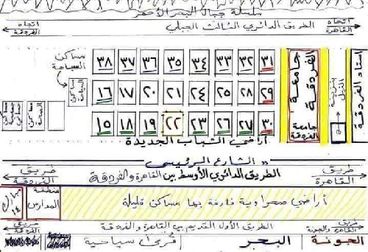 سلسلة جبال البحر الأحمر
اتجاه القاهرة
الطريق الدائري الثالث الجبلي
اتجاه الغردقة
مساكن السياحة
٣٨ ٣٧ ٣٦ ٣٥ ٣٤ ٣٣ ٣٢ ٣١
١٦ ١٧ ٢٠ ٢١ ٢٤ ٢٥ ٢٨ ٢٩
١٥ ١٨ ١٩ ٢٢ ٢٣ ٢٦ ٢٧ ٣٠
جامعة الغردقة
جامعة الغردقة
استاد الغردقة
أراضي الشباب الجديدة
الشارع الرئيسي
طريق الغردقة
الطريق الدائري الأوسط بين القاهرة والغردقة
طريق القاهرة
المدارس
أراضي صحراوية فارغة بها مساكن قليلة
طريق الغردقة
الطريق الأول القديم بين القاهرة والغردقة
طريق القاهرة والجونة
الجونة
البحر
قرى سياحية
الغردقة